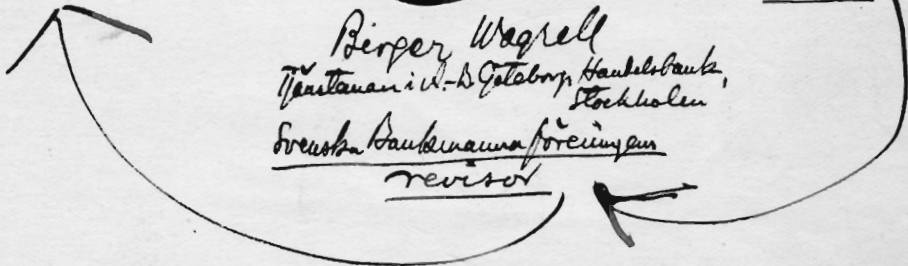 Birger Wagrell
Tjänsteman i A.-B. Göteborgs Handelsbank,
Stockholm
Svenska Bankmannaföreningens
revisor